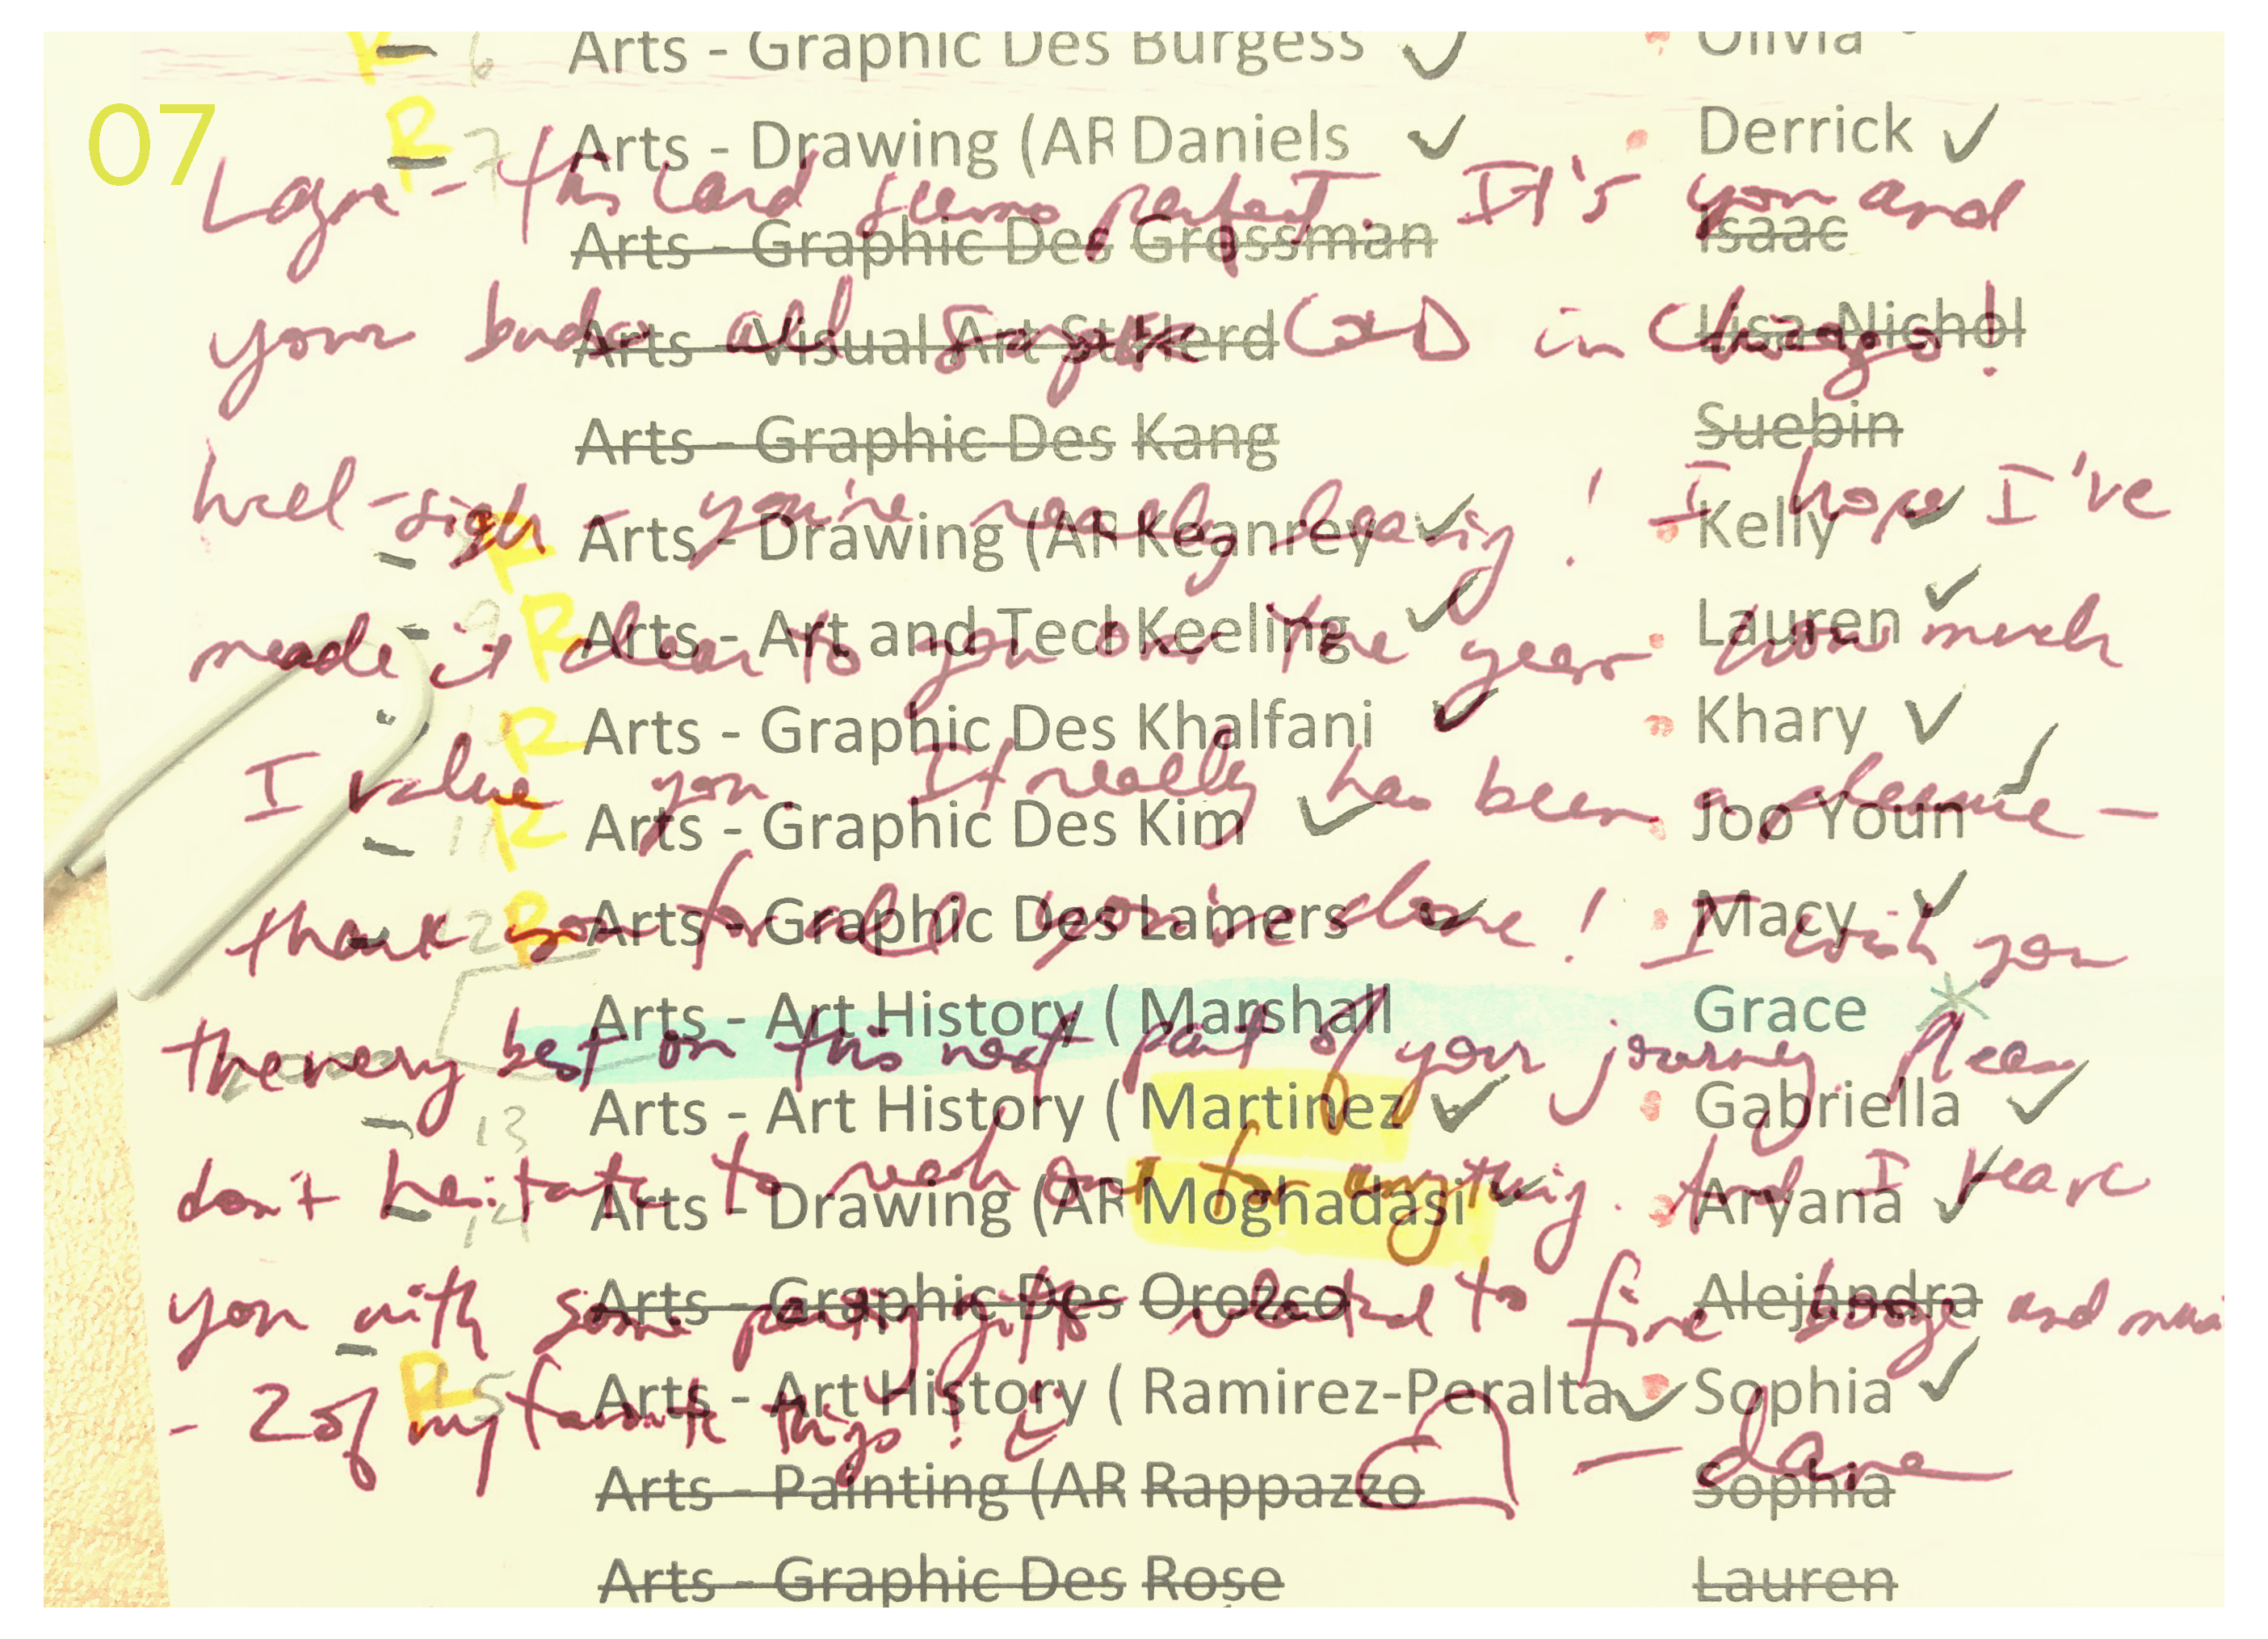 07
6 Arts - Graphic Des Burgess ✓ Olivia
R 7 Arts - Drawing (AR Daniels ✓ Derrick ✓
Layne - this card seems perfect. It's you and
Arts - Graphic Des Grossman Isaac
your buds at in Chicago!
Arts - Visual Art St Herd Lisa Nichol
Arts - Graphic Des Kang Suebin
well - sigh - you're really leaving! I hope I've
R Arts - Drawing (AR Keanrey ✓ Kelly ✓
9 R Arts - Art and Tecl Keeling ✓ Lauren ✓
made it clear to you over the year how much
R Arts - Graphic Des Khalfani ✓ Khary ✓
I value you. It really has been a pleasure -
11 R Arts - Graphic Des Kim ✓ Joo Youn ✓
12 R Arts - Graphic Des Lamers ✓ Macy ✓
thank you for all you've done! I wish you
Arts - Art History ( Marshall Grace
the very best on this next part of your journey. Please
13 Arts - Art History ( Martinez ✓ Gabriella ✓
don't hesitate to reach out for anything. And I leave
14 Arts - Drawing (AR Moghadasi ✓ Aryana ✓
Arts - Graphic Des Orozco Alejandra
you with some parting gifts related to fine booze and
R 5 Arts - Art History ( Ramirez-Peralta ✓ Sophia ✓
- 2 of my favorite things!
- dane
Arts - Painting (AR Rappazzo Sophia
Arts - Graphic Des Rose Lauren